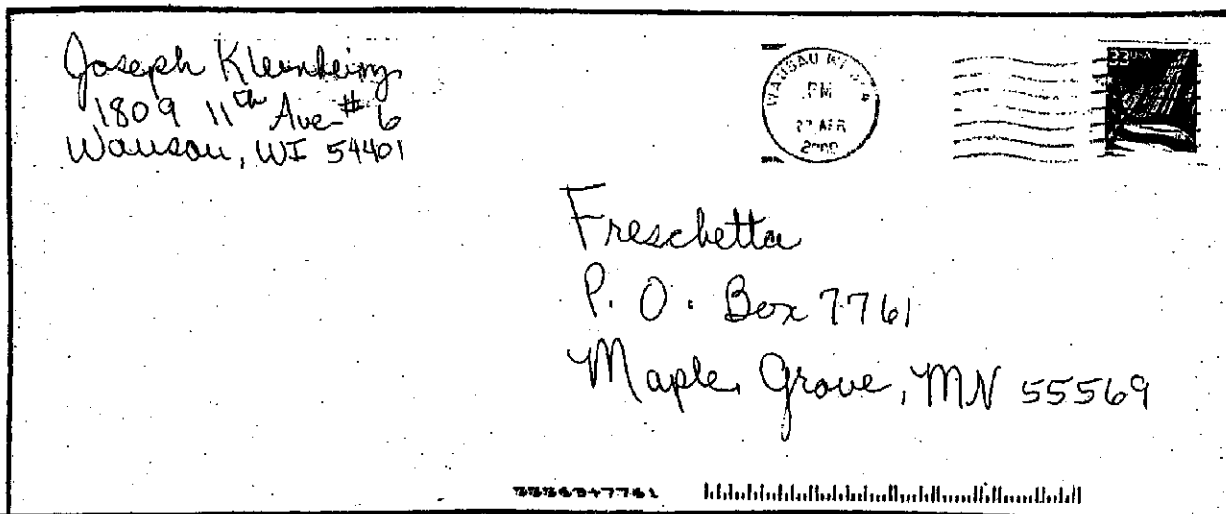 Joseph
1809 11th Ave # 6
Wausau, WI 54401
WAUSAU WI
PM
27 APR
2000
Freschetta
P. O. Box 7761
Maple Grove, MN 55569